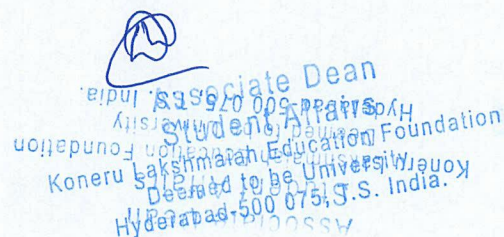 Associate Dean
Student Affairs
Koneru Lakshmaiah Education Foundation
Deemed to be University
Hyderabad-500 075, T.S. India.